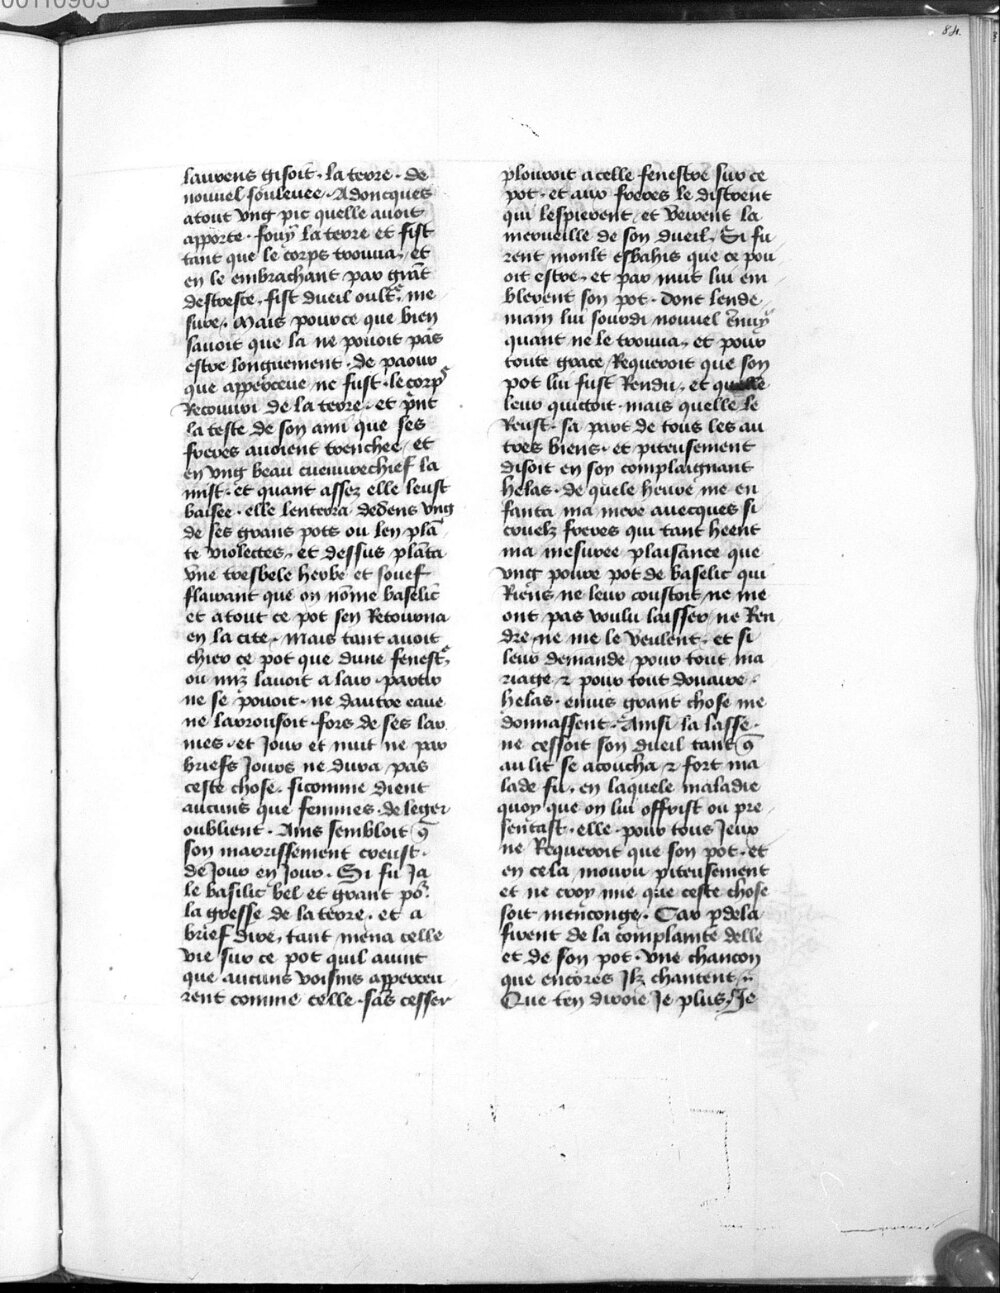 00110903
84.
laurens gisoit · la terre · de
nouuel soulevee · Adoncques
atout vng pic quelle auoit
apporte · fouÿ la terre et fist
tant que le corps trouua, et
en le embrachant par grāt
destresce, fist dueil oultre me
sure · Mais pource que bien
sauoit que la ne pouoit pas
estre longuement · de paour
que apperceue ne fust · le corps
Recouuri de la terre · et pñt
la teste de son ami que ses
freres auoient trenchee, et
en vng beau cueuurechief la
mist · et quant assez elle leust
baisee · elle lenterra dedens vng
de ses grans pots ou len plā
te violectes, et dessus planta
vne tresbele herbe et souef
flairant que on nōme baselic
et atout ce pot sen Retourna
en la cite · Mais tant auoit
chier ce pot que dune fenestre
ou miz lauoit a lair · partir
ne se pouoit · ne dautre eaue
ne larrousoit · fors de ses lar
mes · et Jour et nuit ne par
briefs Jours ne dura pas
ceste chose · sicomme dient
aucuns que femmes · de leger
oublient · Ains sembloit q̄
son marrissement creust ·
de Jour en Jour · Si fu Ja
le basilic bel et grant por
la gresse de la terre · et a
brief dire, tant mena celle
vie sur ce pot quil auint
que aucuns voisins apperceu
rent comme celle · sās cesser
plouroit a celle fenestre sur ce
pot · et aux freres le distrent
qui lespierent, et veirent la
merueille de son dueil, Si fu
rent moult esbahis que ce pou
oit estre, et par nuit lui em
blerent son pot · dont lende
main lui sourdi nouuel ēnuy
quant ne le trouua, et pour
toute grace Requeroit que son
pot lui fust Rendu, et quelle
leur quictoit · mais quelle le
Reust · sa part de tous les au
tres biens · et piteusement
disoit en son complaignant
helas · de quele heure me en
fanta ma mere auecques si
cruelz freres qui tant heent
ma mesuree plaisance que
vng poure pot de baselic qui
Riens ne leur coustoit, ne me
ont pas voulu laisser, ne Ren
dre ne me le veulent · et si
leur demande pour tout ma
riage & pour tout douaire ·
helas · enuis grant chose me
donnassent · Ainsi la lasse ·
ne cessoit son dueil tant q̄
au lit se acoucha & fort ma
lade fu, en laquele maladie
quoy que on lui offrist ou pre
sentast · elle · pour tous Jeux
ne Requeroit que son pot · et
en cela mouru piteusement
et ne croy mie que ceste chose
soit menconge · Car p̄dela
firent de la complainte delle
et de son pot · vne chancon
que encores Ilz chantent ·
Que ten diroie Je plus, Je